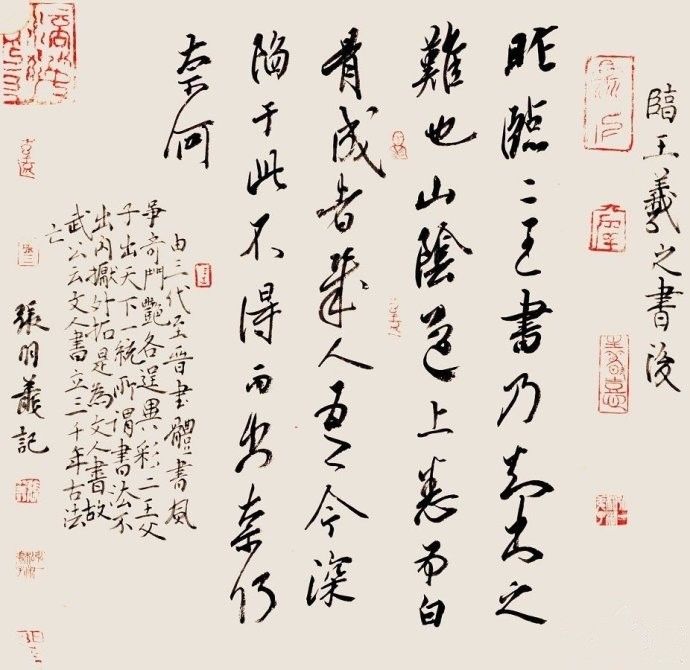 臨王羲之書後
昨臨二王書乃知出之
難也山陰道上悉布白
骨成者幾人吾今深
陷于此不得而出奈何
奈何
由三代至晉書體書風
爭奇鬥艷各逞異彩二王父
子出天下一統所謂書法不
出內擫外拓是為文人書故
武公云文人書立三千年古法
亡
張 記